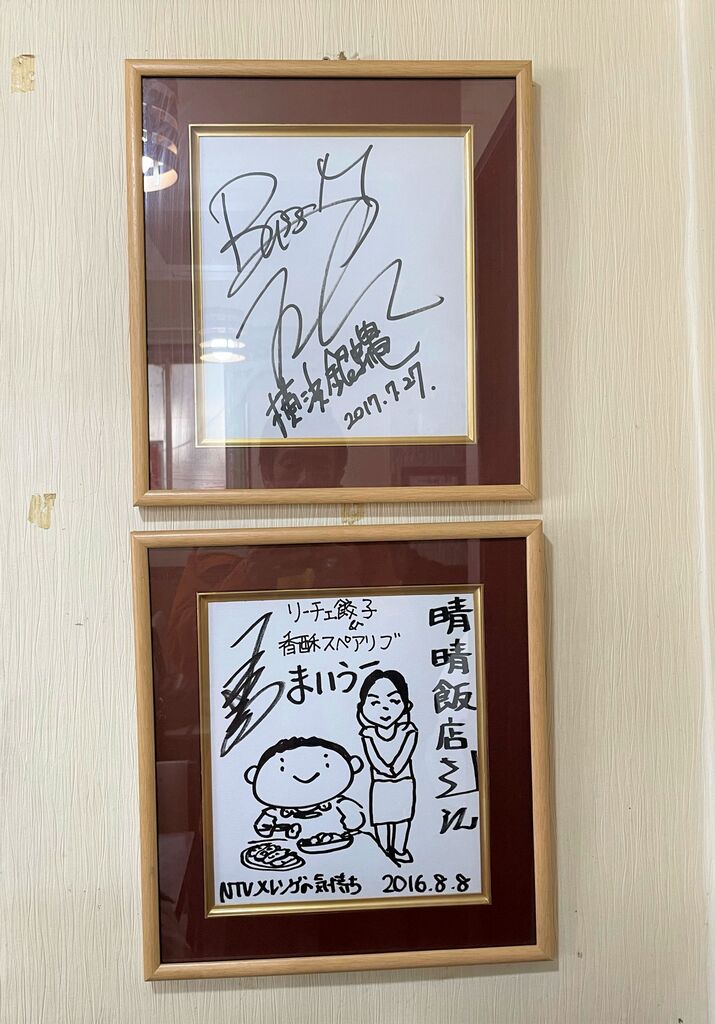 横浜銀蝿
2017.7.27.
リーチェ餃子
&
香酥スペアリブ
まいうー
晴晴飯店さん江
NTV メレンゲの気持ち 2016.8.8